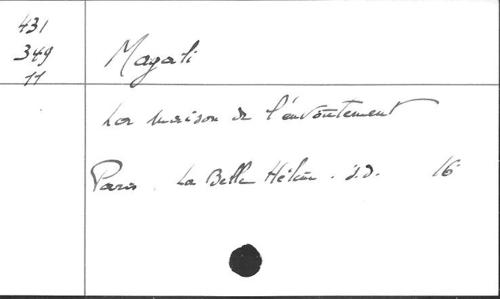 431
349
11
Magali
La maison de l'envoûtement
Paris. La Belle Hélène. s.d. 16